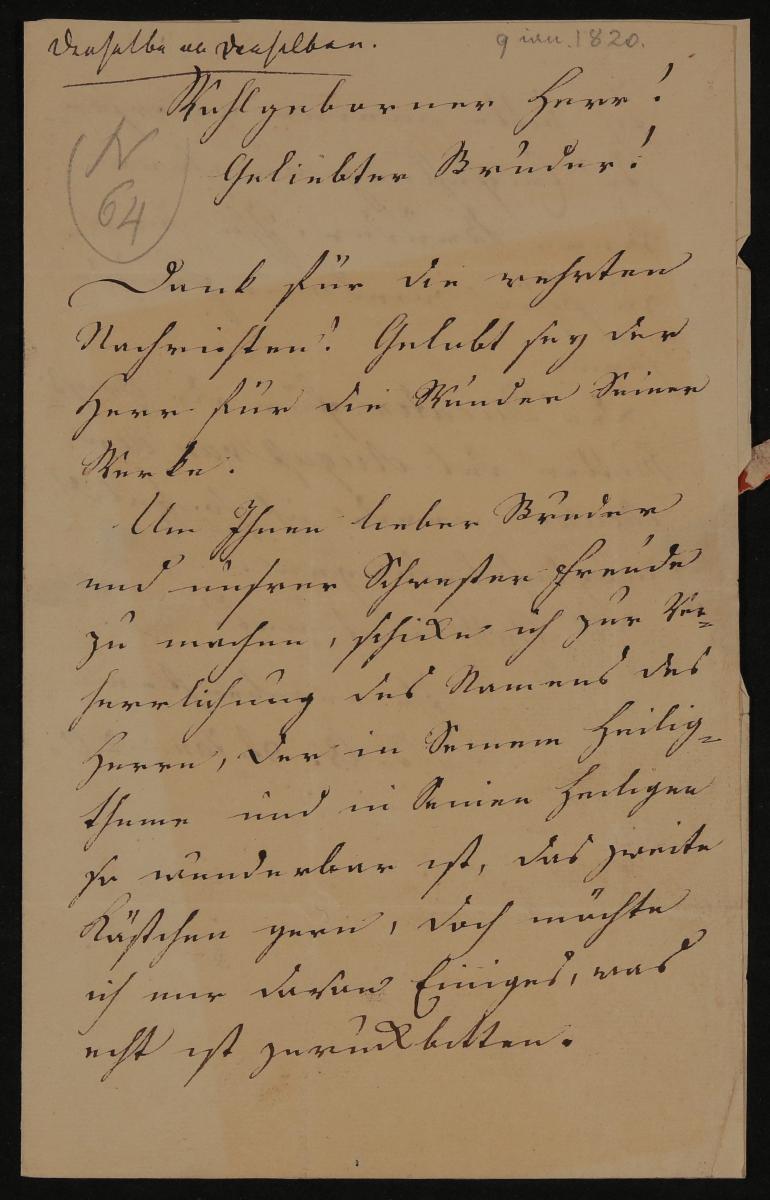 Derselbe an Denselben.
9 ian. 1820.
Wohlgeborner Herr!
Geliebter Bruder!
N
64
Dank für die wehrten
Nachrichten! Gelobt sey der
Herr für die Wunder Seiner
Werke.
Um Ihnen lieber Bruder
und unsrer Schwester Freude
zu machen, schicke ich zur Ver=
herrlichung des Namens des
Herrn, der in Seinem Heilig=
thume und in Seinen Heiligen
so wunderbar ist, das zweite
Kästchen gern, doch möchte
ich mir davon Einiges, was
echt ist zurückbitten.